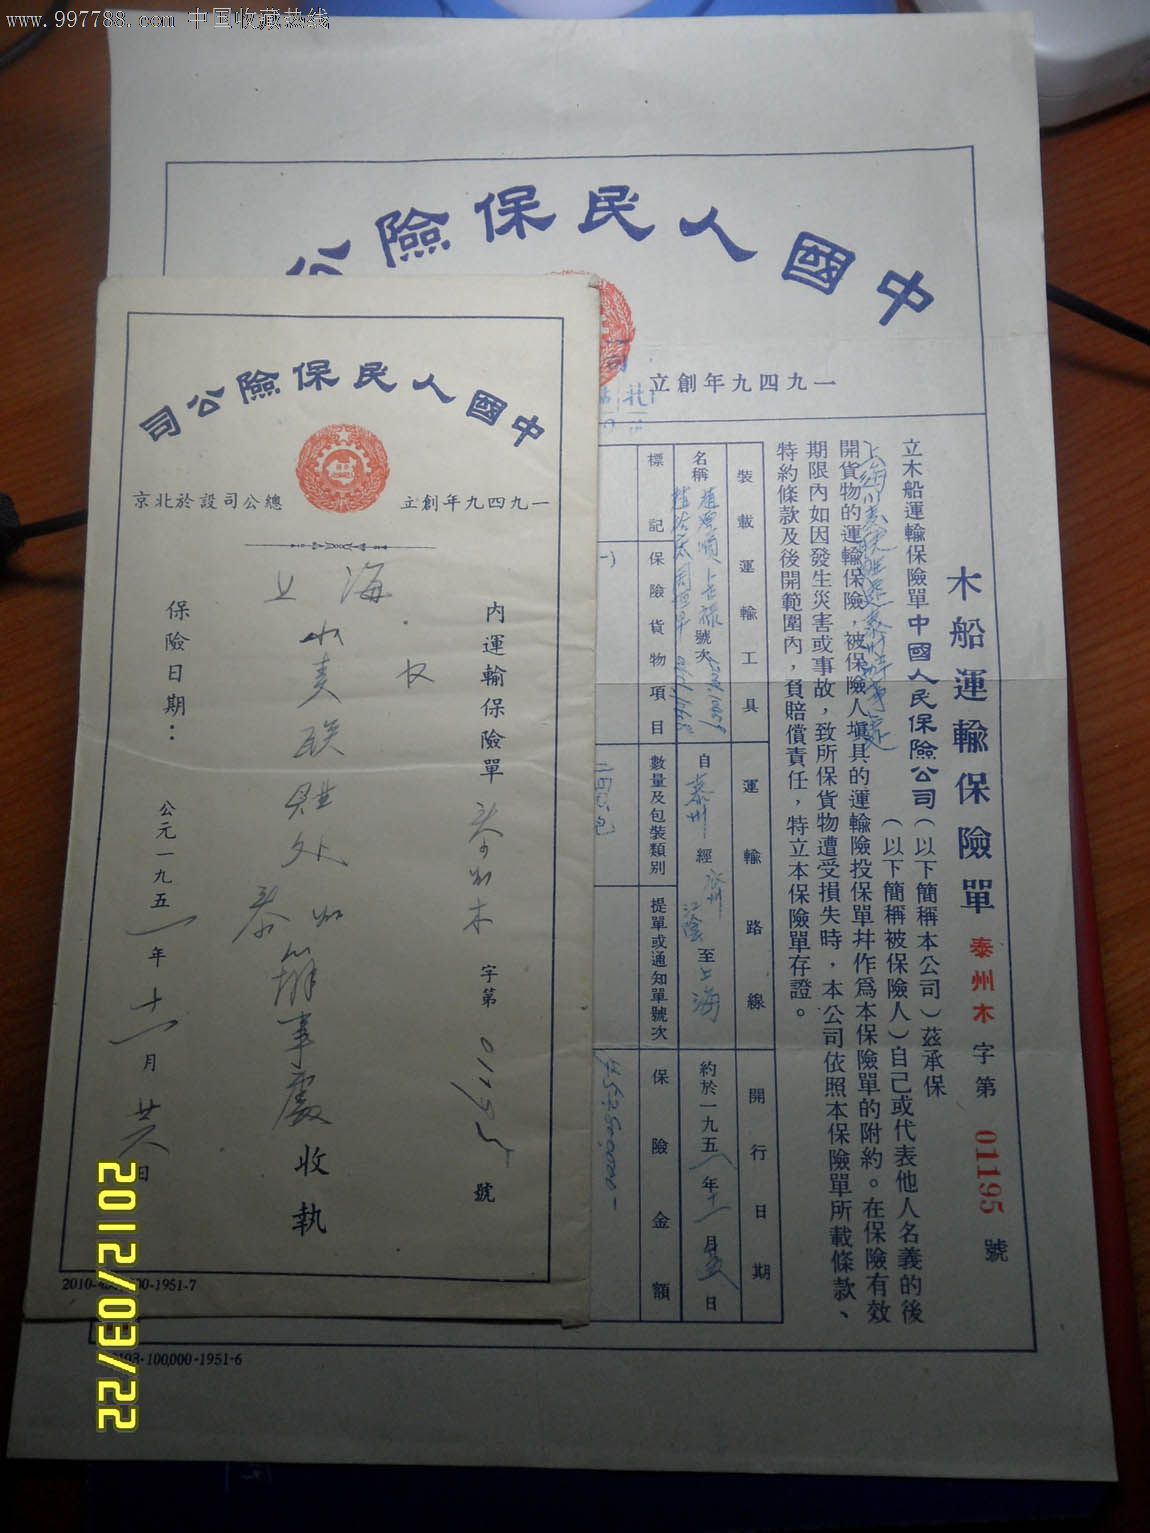 www.997788.com 中国收藏热线
中國人民保險公
一九四九年創立
木船運輸保險單 泰州木字第 01195 號
立木船運輸保險單中國人民保險公司(以下簡稱本公司)茲承保
(以下簡稱被保險人)自己或代表他人名義的後
開貨物的運輸保險,被保險人塡具的運輸險投保單幷作爲本保險單的附約。在保險有效
期限內如因發生災害或事故,致所保貨物遭受損失時,本公司依照本保險單所載條款、
特約條款及後開範圍內,負賠償責任,特立本保險單存證。
裝載運輸工具
運輸路線
開行日期
名稱
號次
自泰州經
江陰
至上海
約於一九五一年十一月
日
標記
保險貨物項目
數量及包裝類別
提單或通知單號次
保險金額
中國人民保險公司
一九四九年創立
總公司設於北京
內運輸保險單 泰州木字第 01195 號
上海
泰州
辦事處收執
保險日期:公元一九五一年十一月廿六日
2010-
00-1951-7
100,000-1951-6
2012/03/22